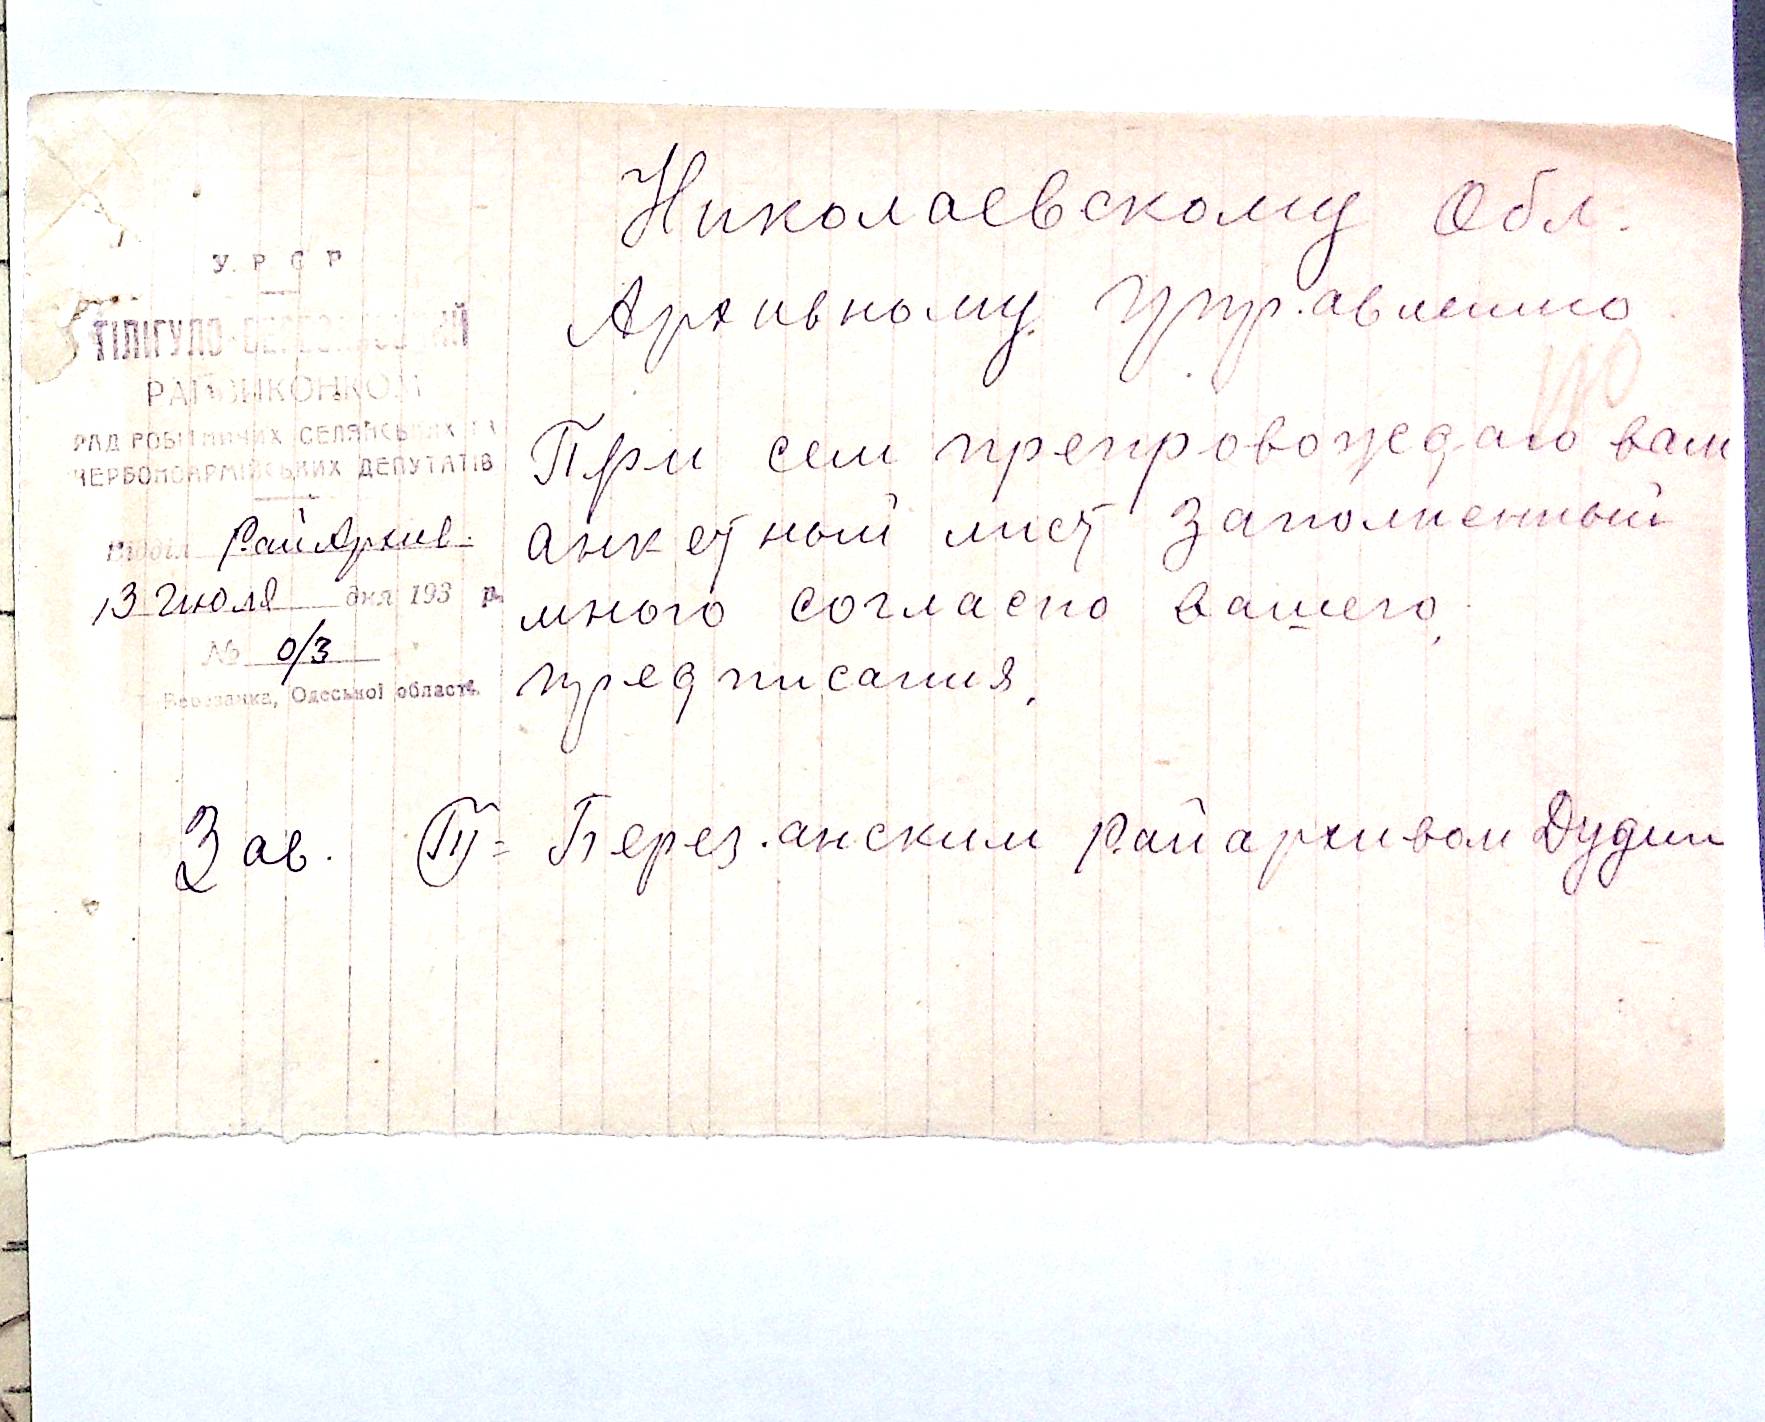 У. Р С Р
ТІЛІГУЛО-БЕРЕЗАНСЬКИЙ
РАЙВИКОНКОМ
РАД РОБІТНИЧИХ СЕЛЯНСЬКИХ ТА
ЧЕРВОНОАРМІЙСЬКИХ ДЕПУТАТІВ
Відділ РайАрхив.
13 Июля дня 193 р.
№ 0/3
Березанка, Одеської області.
Николаевскому Обл.
Архивному Управлению
При сем препровождаю вам
анкетный лист заполненный
мною согласно вашего
предписания.
Зав. Т= Березанским Райархивом Дудин